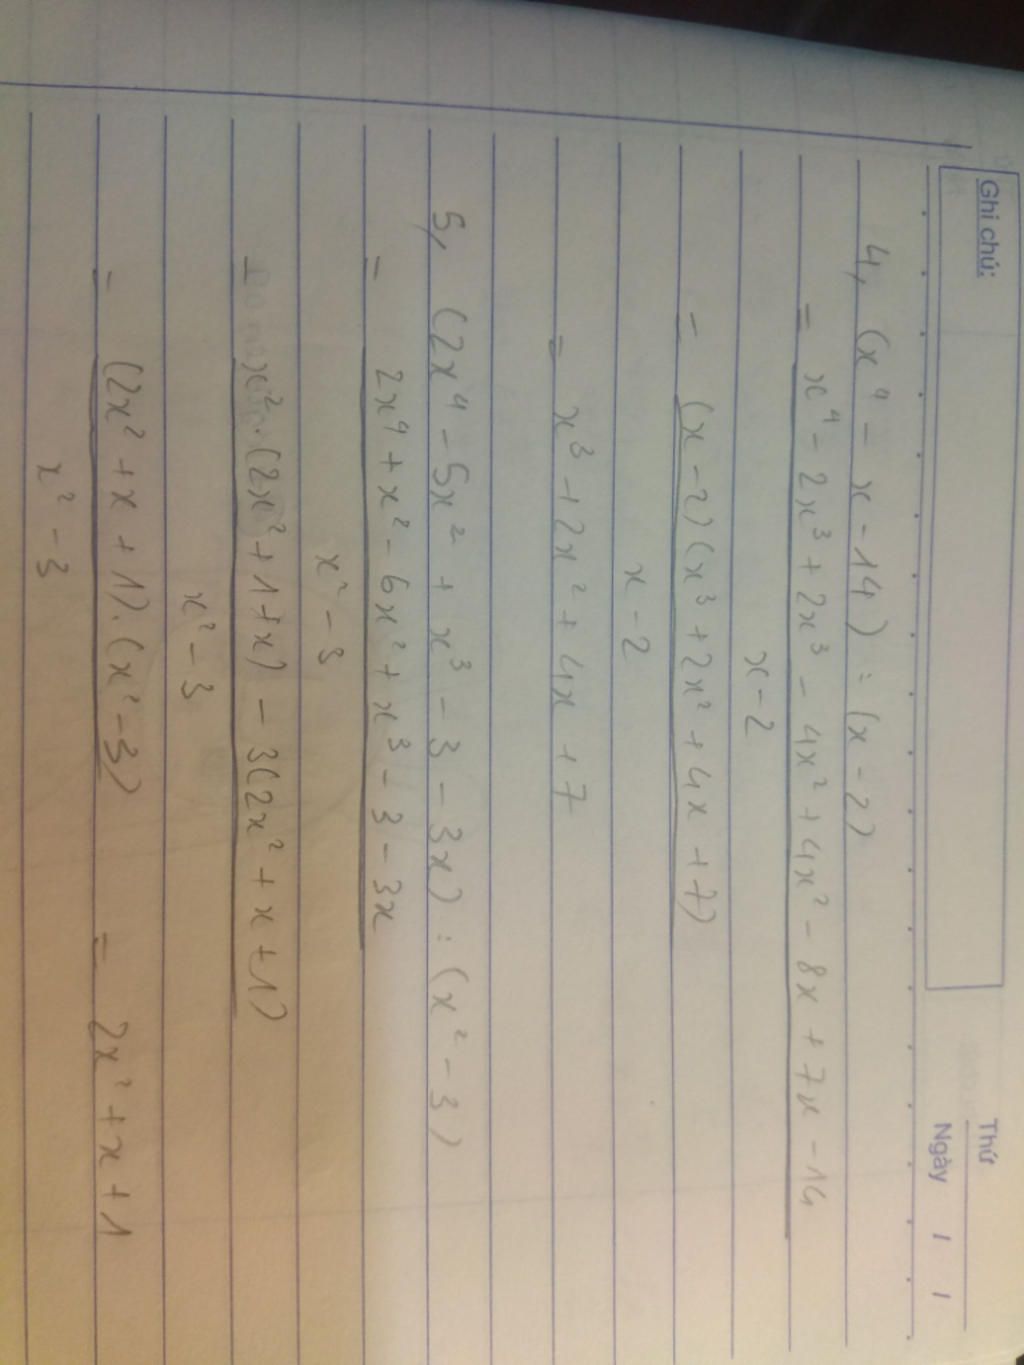 Ghi chú:
Thứ
Ngày / /
4, (x⁴ - x - 14) : (x - 2)
= x⁴ - 2x³ + 2x³ - 4x² + 4x² - 8x + 7x - 14
x - 2
= (x - 2)(x³ + 2x² + 4x + 7)
x - 2
= x³ + 2x² + 4x + 7
5, (2x⁴ - 5x² + x³ - 3 - 3x) : (x² - 3)
= 2x⁴ + x² - 6x² + x³ - 3 - 3x
x² - 3
= x². (2x² + 1 + x) - 3(2x² + x + 1)
x² - 3
= (2x² + x + 1).(x² - 3) = 2x² + x + 1
x² - 3